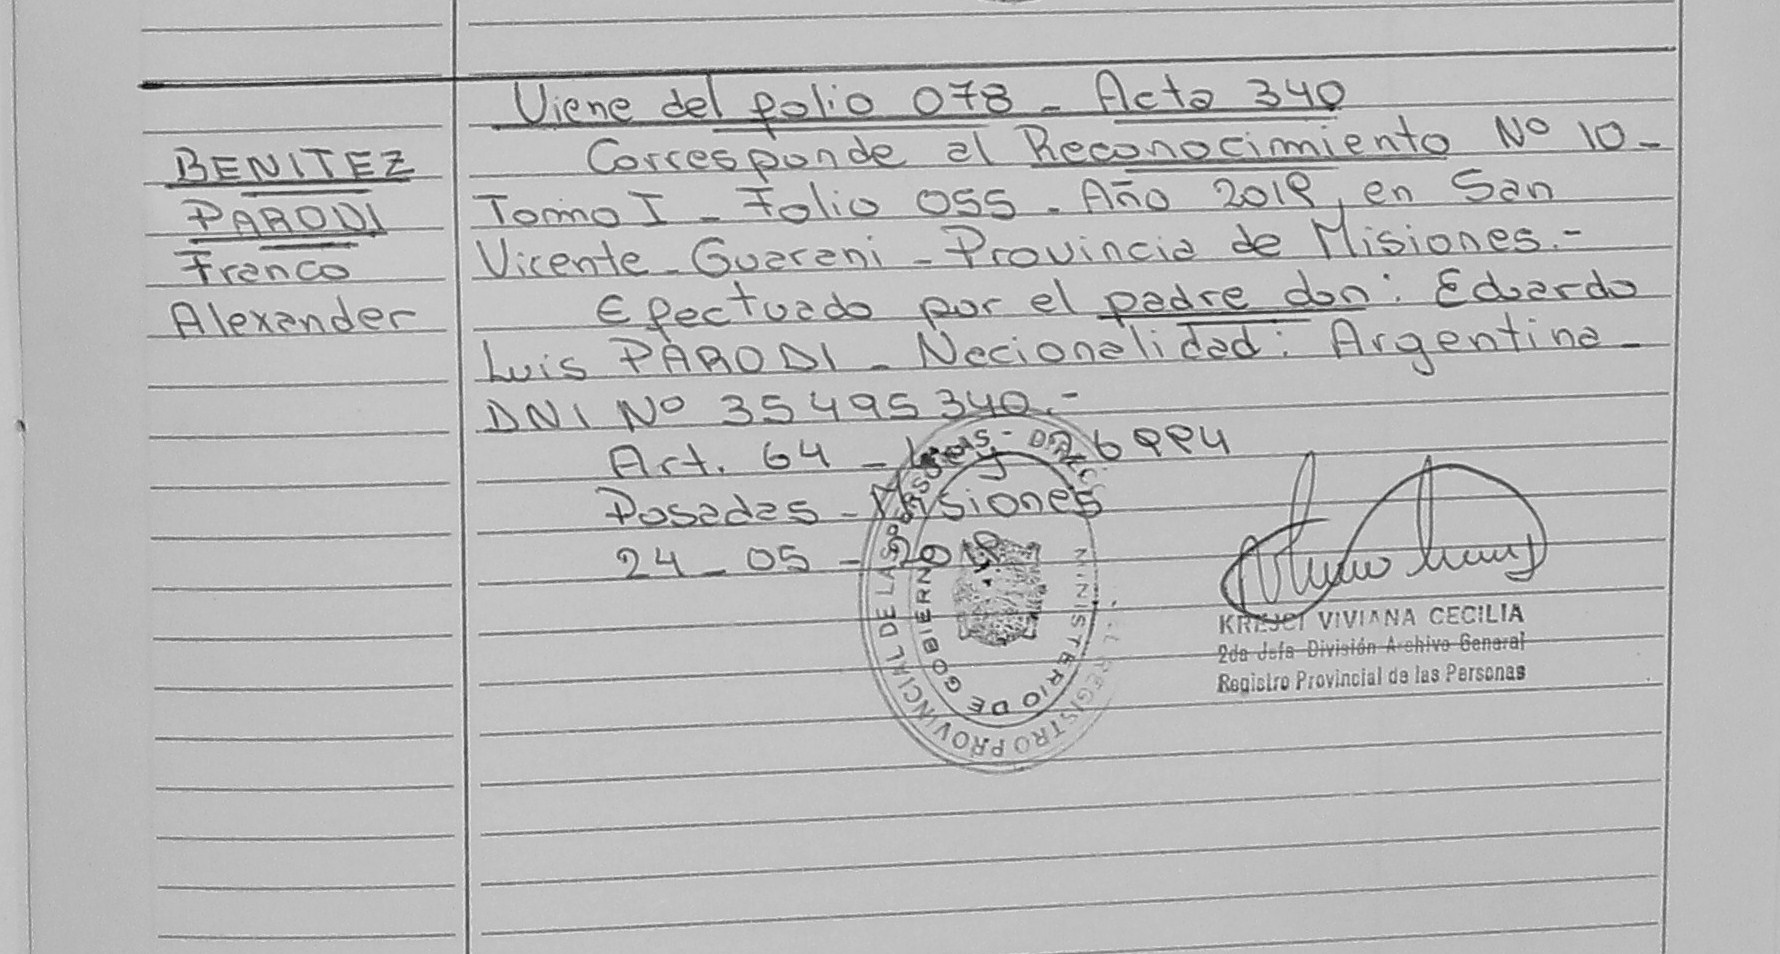 Viene del folio 078 - Acta 340
BENITEZ
PARODI
Franco
Alexander
Corresponde al Reconocimiento Nº 10 -
Tomo I - Folio 055 - Año 2018, en San
Vicente - Guarani - Provincia de Misiones.-
Efectuado por el padre don: Eduardo
Luis PARODI - Nacionalidad: Argentina -
DNI Nº 35495340.-
Art. 64 - Ley 26994
Posadas - Misiones
24 - 05 - 2018
REGISTRO PROVINCIAL DE LAS PERSONAS -
MINISTERIO DE GOBIERNO
KREJCI VIVIANA CECILIA
2da Jefa División Archivo General
Registro Provincial de las Personas